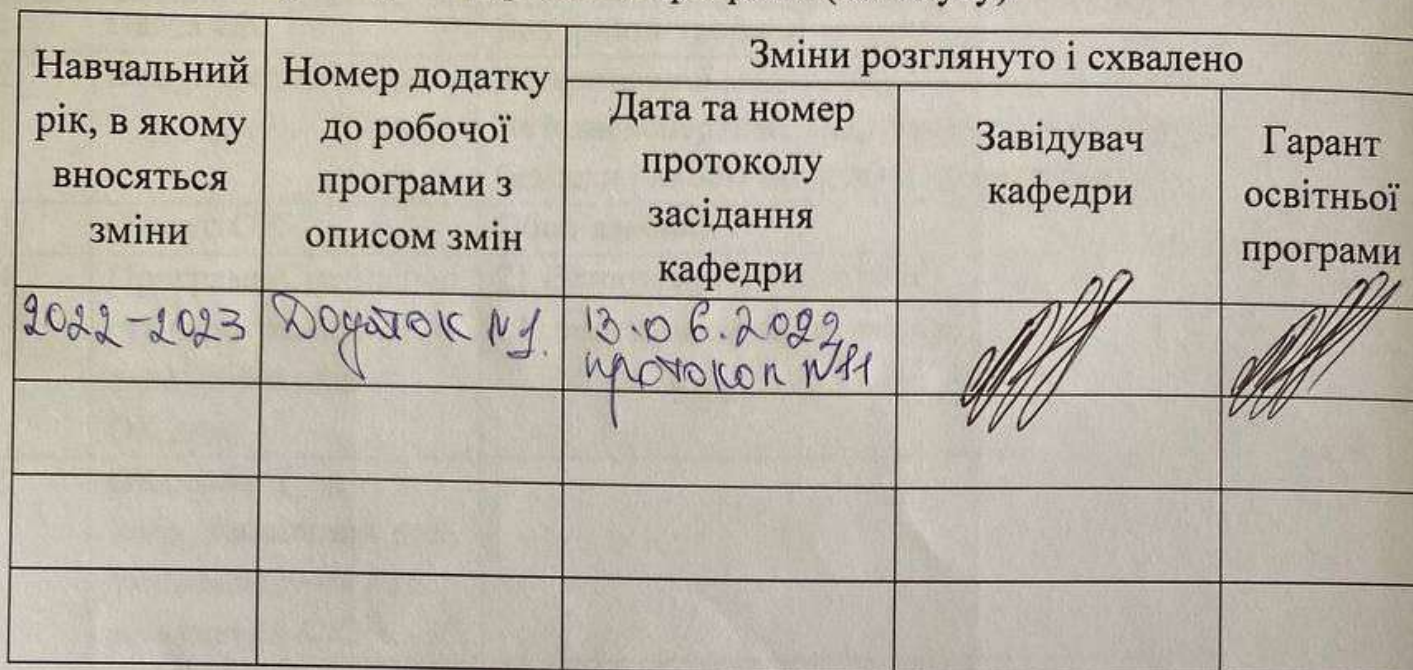 Навчальний
рік, в якому
вносяться
зміни
Номер додатку
до робочої
програми з
описом змін
Зміни розглянуто і схвалено
Дата та номер
протоколу
засідання
кафедри
Завідувач
кафедри
Гарант
освітньої
програми
2022-2023
Додаток №1.
13.06.2022
протокол №11